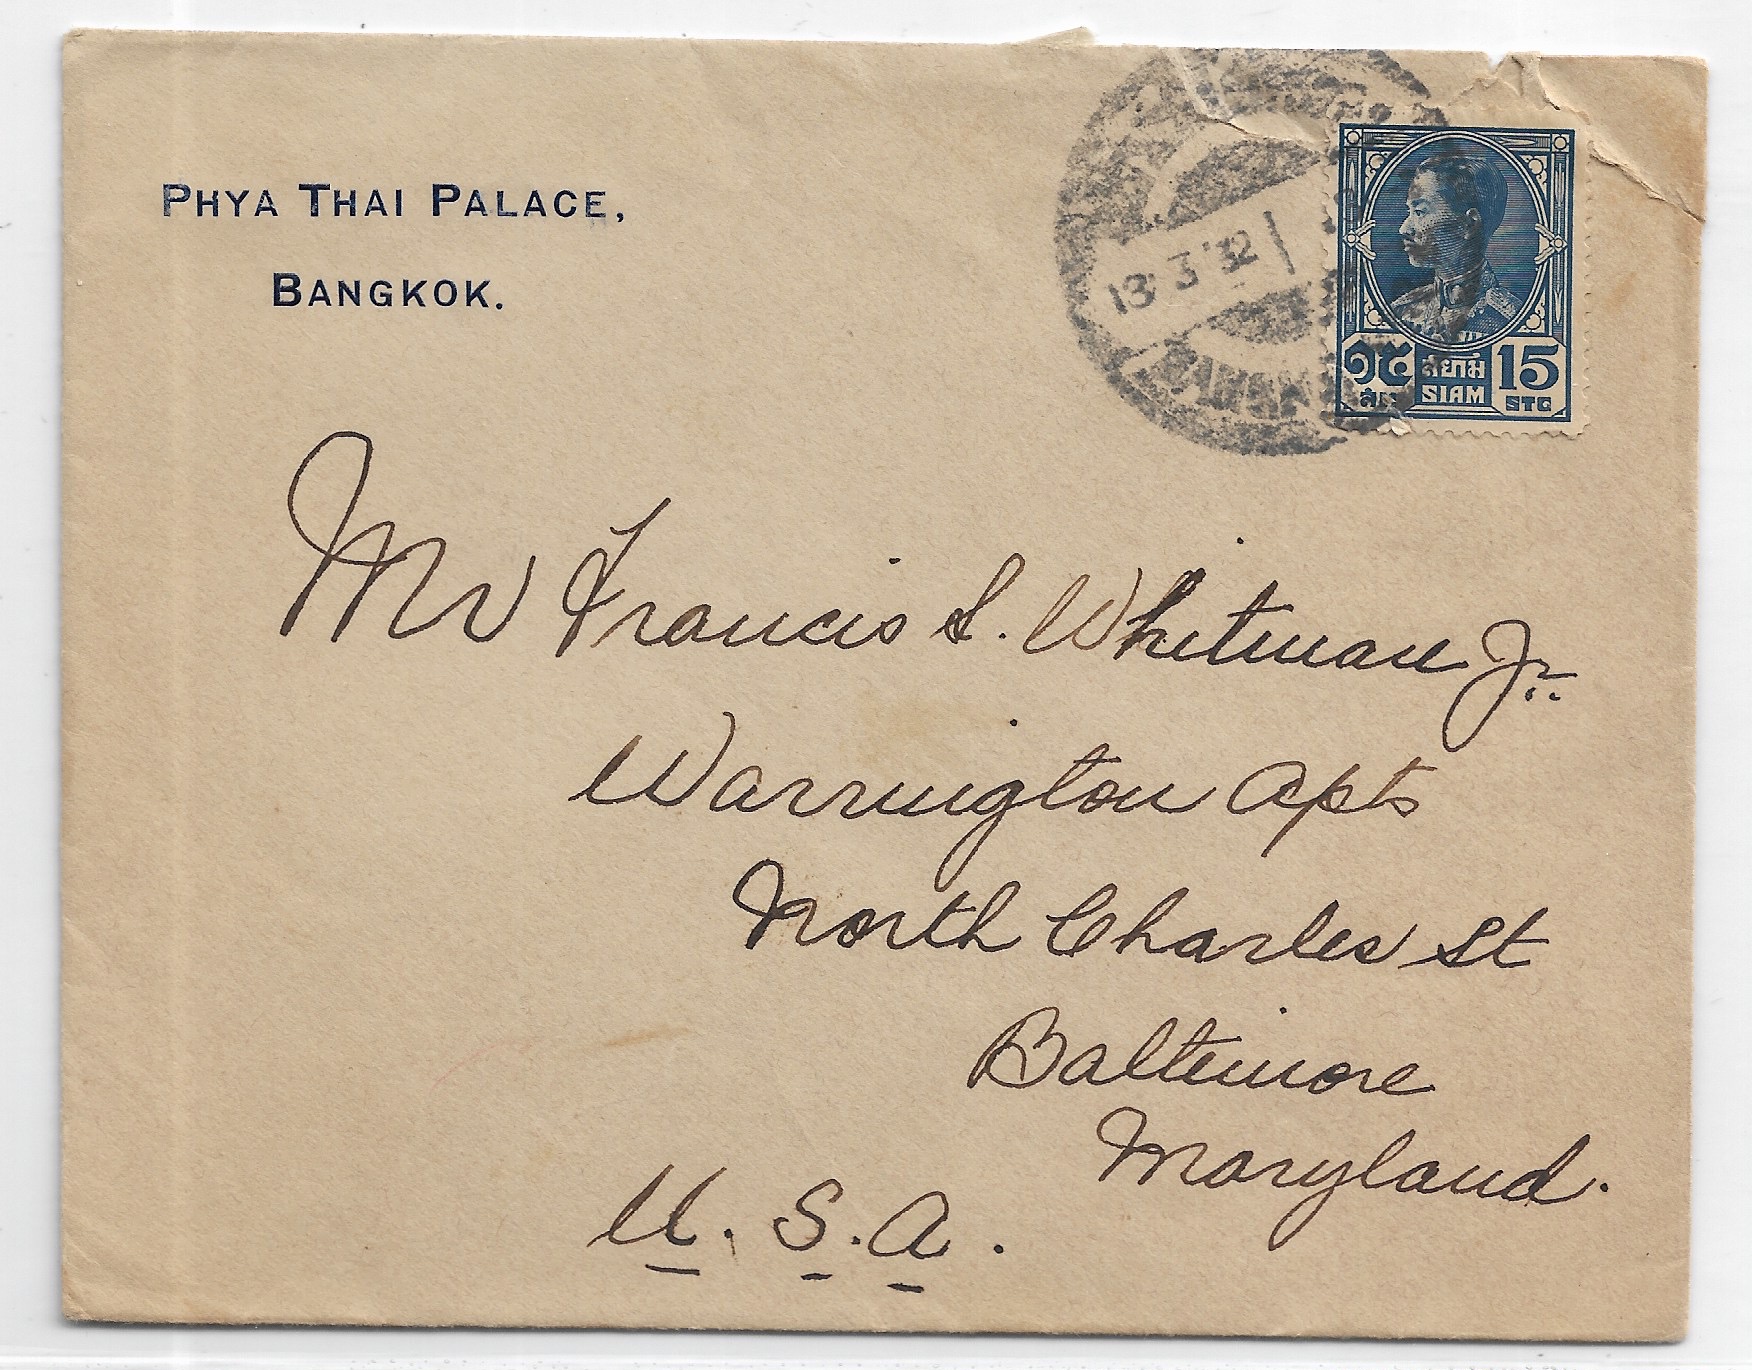 PHYA THAI PALACE,
BANGKOK.
13 3 '32
๑๕ สยาม 15
SIAM STG
Mr Francis S. Whitman Jr.
Warrington Apts
North Charles St
Baltimore
Maryland.
U. S. A.